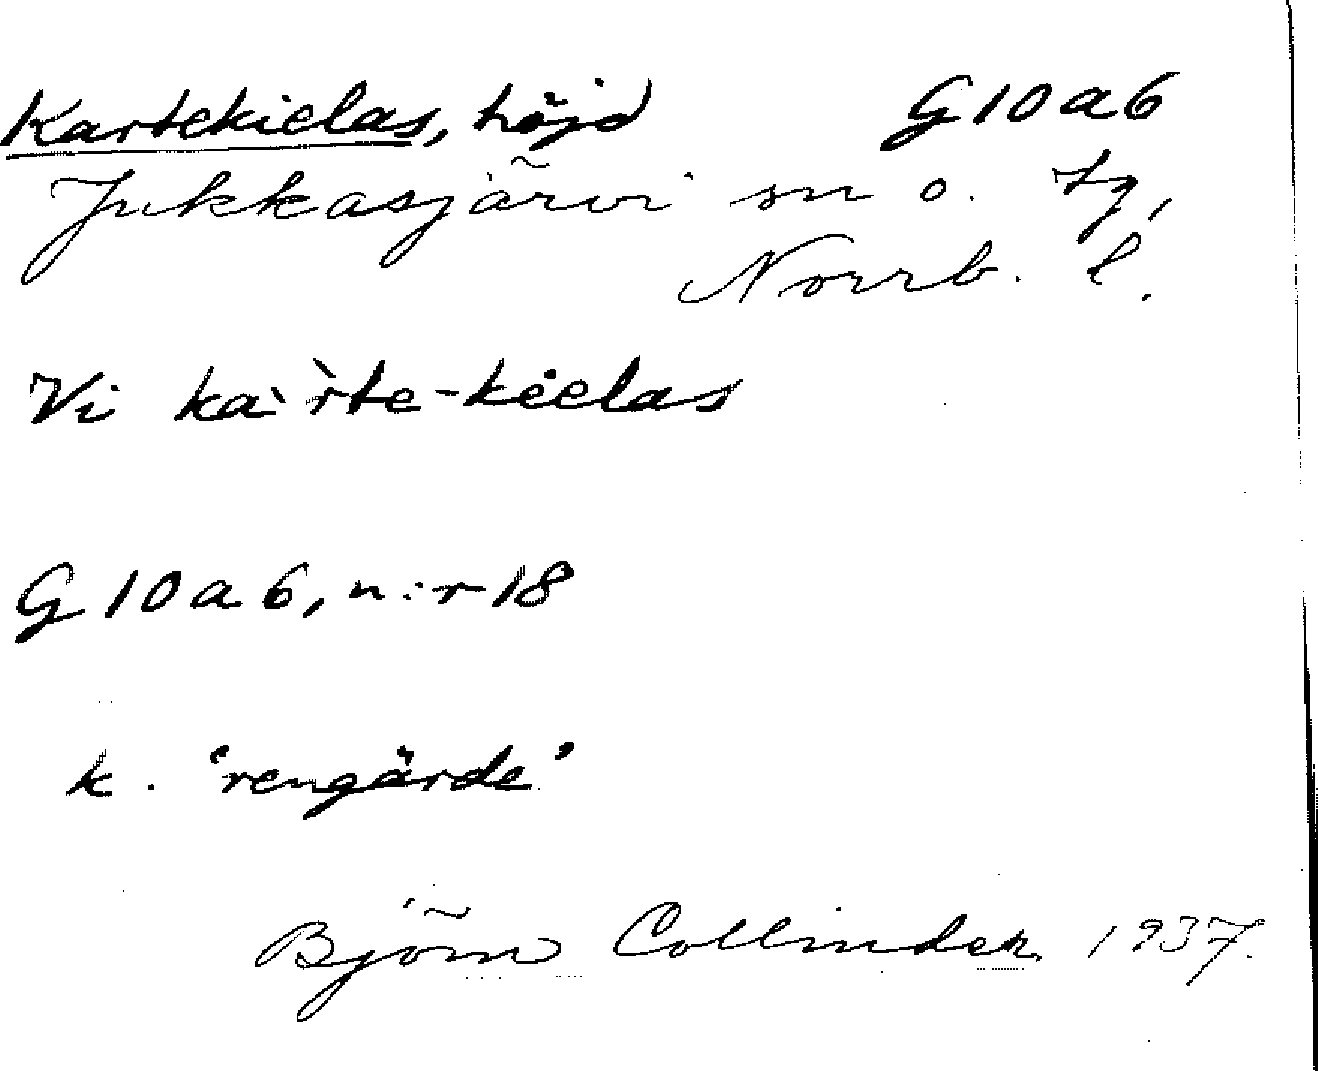 Kartekielas, höjd G10a6
Jukkasjärvi sn o. tg,
Norrb. l.
Vi ka`r̀te-kielas
G10a6, n:r 18
k. 'rengärde'
Björn Collinder 1937.